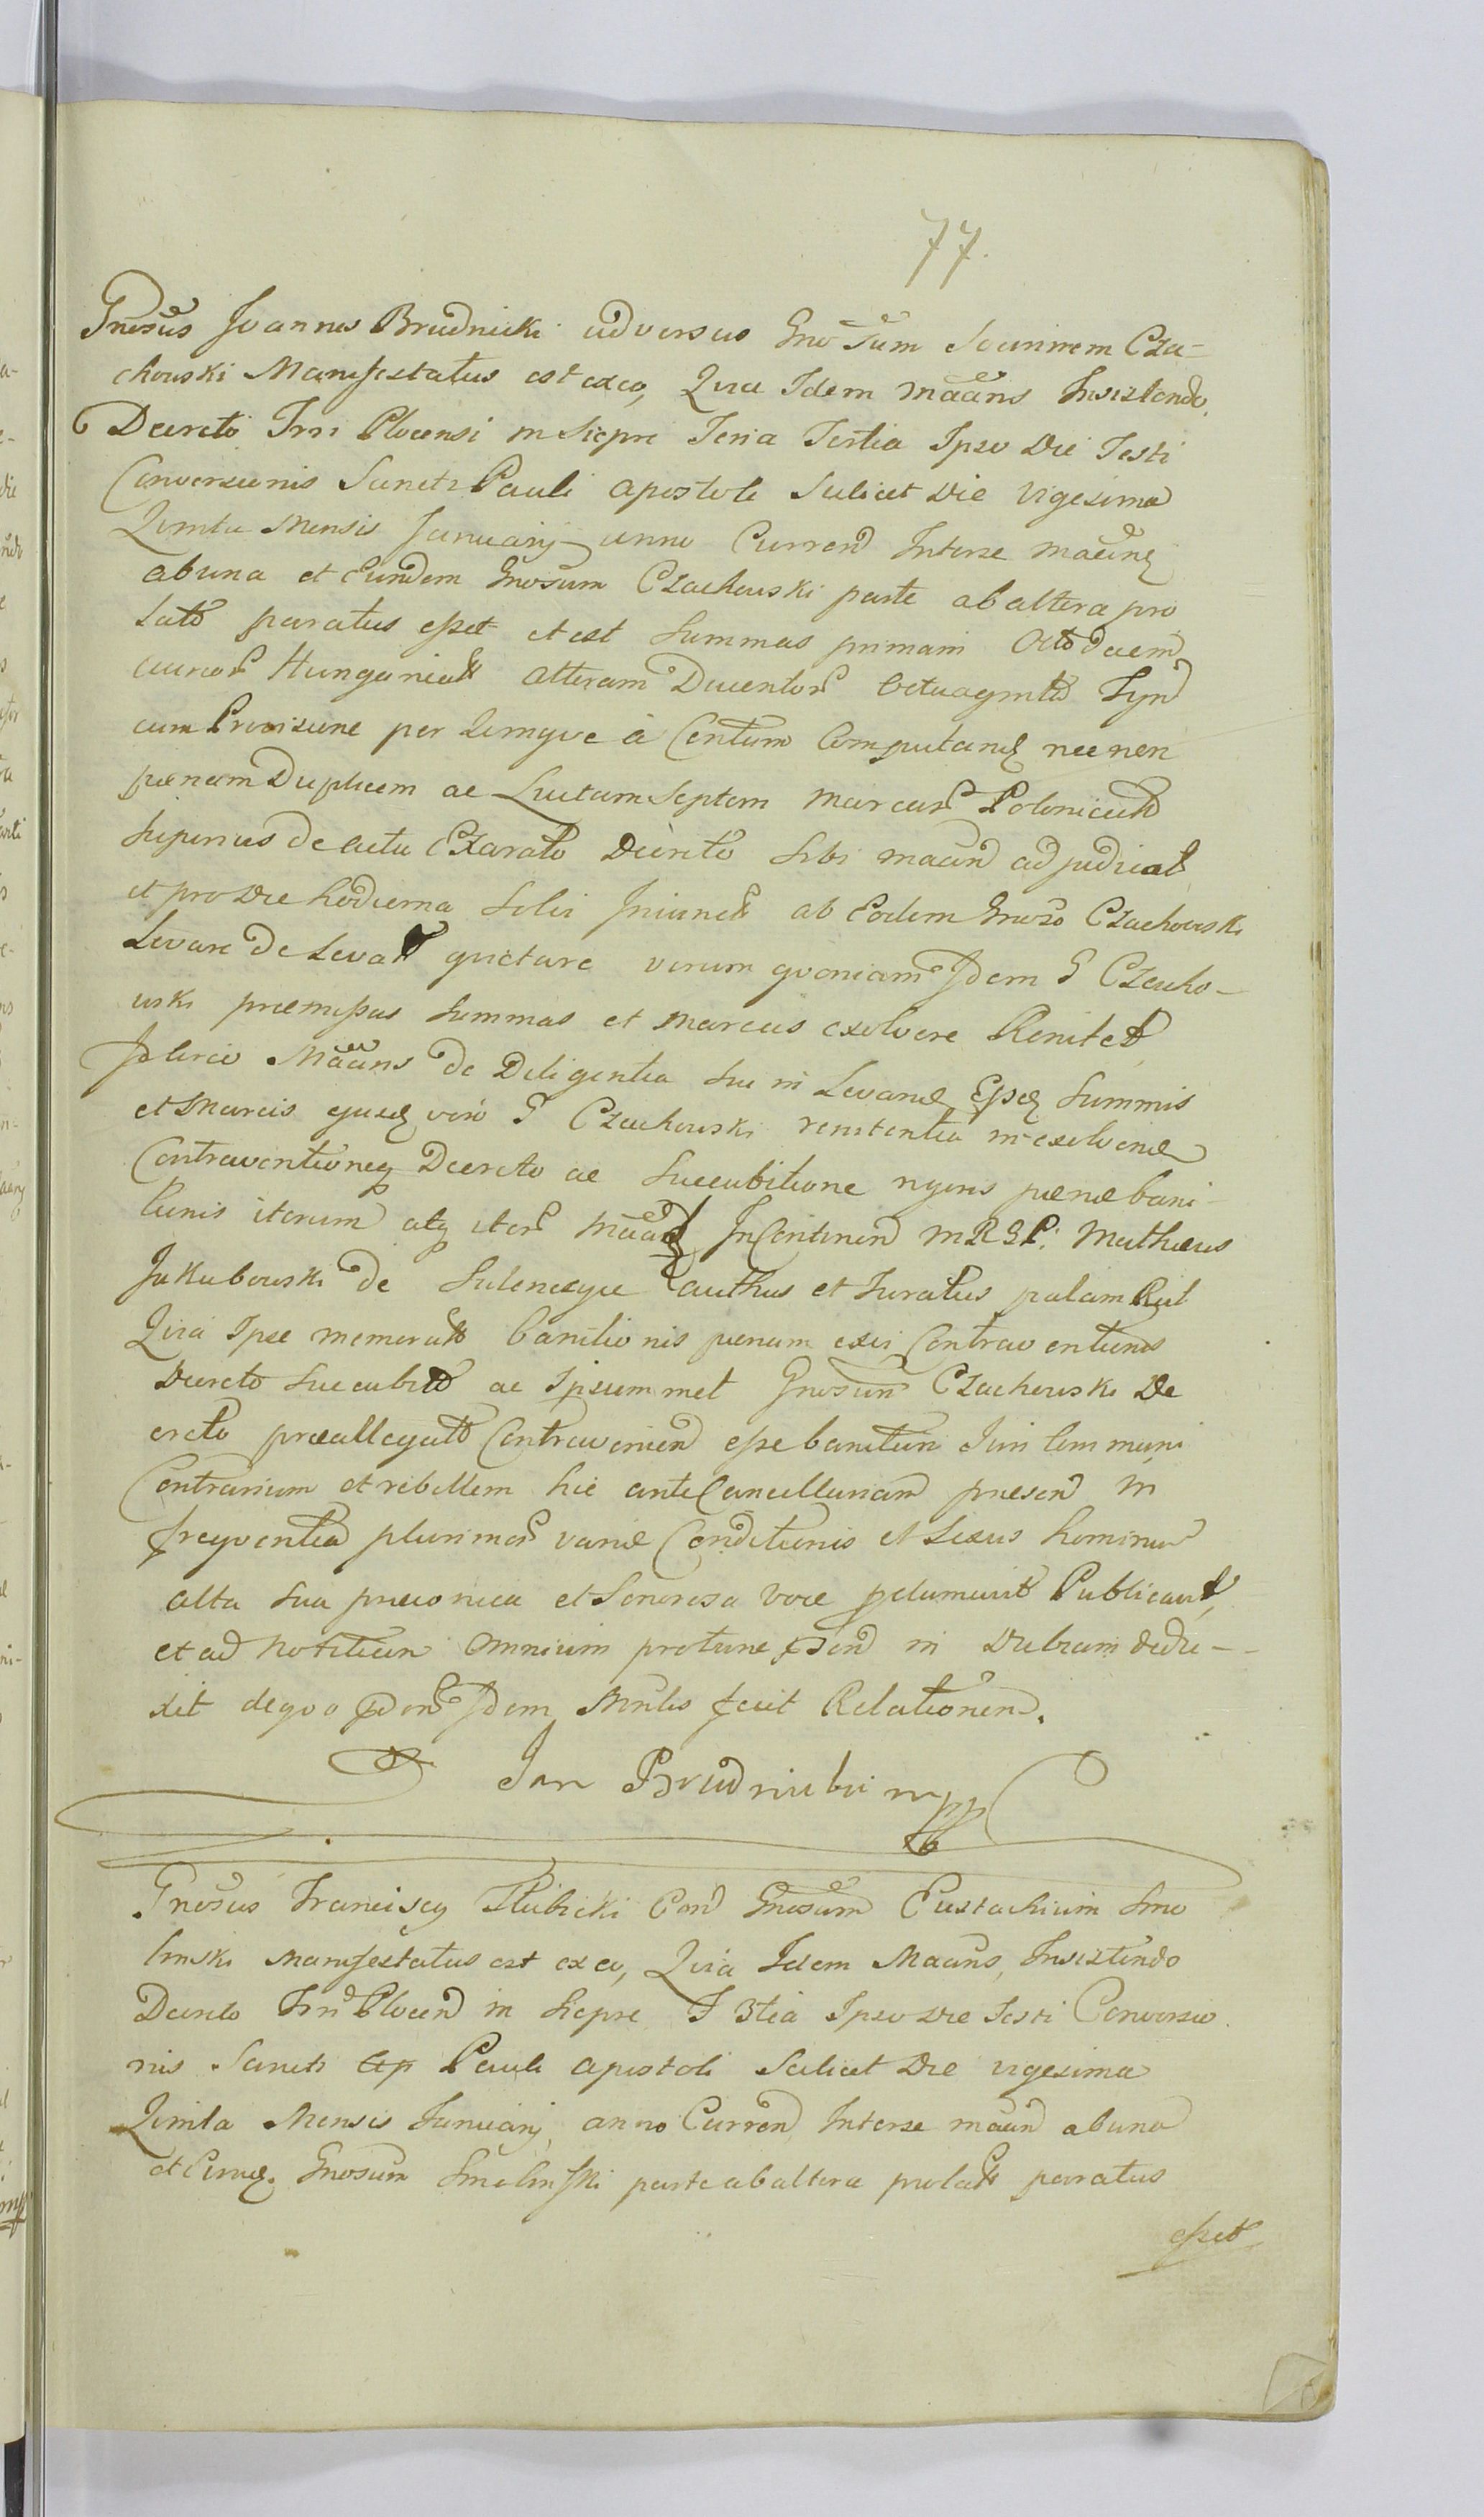 77.
Gnosus Joannes Brudnicki adversus Gnosum Joannem Cza-
chowski Manifestatus est ex eo, Quia Idem Maans Insistendo
Decreto Trri Plocensi in Siepre Feria Tertia Ipso Die Festi
Conversionis Sancti Pauli Apostoli Scilicet Die Vigesima
Quinta Mensis Januarij anno Curren Interse maanę
ab una et Eundem Gnosum Czachowski parte ab altera pro
lato paratus esset et est Summas primam Octodecem
aureor Hungarical alteram Ducentor Octuaginta Tyn
cum Provisione per Qvinqve à Centum Computandę nec non
pœnam Duplicem ac Luctam Septem Marcar Polonical
Superius de actu Exarato Decreto Sibi maan adjudicat
et pro Die hodierna Solvi Iniunct ab Eodem Gnoso Czachowski
Levare de Levat qvietare verum qvoniam Idem G Czacho-
wski præmissas Summas et Marcas exolvere Renitet
Idcirco Maans de Diligentia Sui in Levandę Eisdę Summis
et Marcis ejusdę vero G Czachowski renitentia in exolvendę
Contraventioneq Decreto ac Succubitione rigoris pœnæ bani-
tionis iterum atq iter Maan In Continen M R G P: Mathæus
Jakubowski de Sulencyce authus et Juratus palam Rlt
Quia Ipse memorat banitionis pœnam ex vi Contraventionis
Decreto Succubit ac Ipsummet Gnosum Czachowski De
creto præallegat Contravenien esse banitum Juri Communi
Contrarium et rebellem hic ante Cancellariam præsen in
freqventia plurimor variæ Conditionis et Sexus hominum
alta Sua præconica et Sonorosa Voce proclamavit Publicavit,
et ad Notitiam Omnium protunc præsen in Debitam dedu-
xit de qvo præmor Idem Minlis fecit Relationem.
Jan Brudnicki mpp
Gnosus Franciscq Słubicki Con Gnosum Eustachium Smo
linski Manifestatus est ex eo, Quia Idem Maans, Insistendo
Decreto Trri Plocen in Siepre F 3tia Ipso Die Festi Conversio
nis Sancti Ap Pauli Apostoli Scilicet Die vigesima
Quinta Mensis Januarij, anno Curren Interse maan ab una
et Eundę Gnosum Smolinski parte ab altera prolat paratus
esset